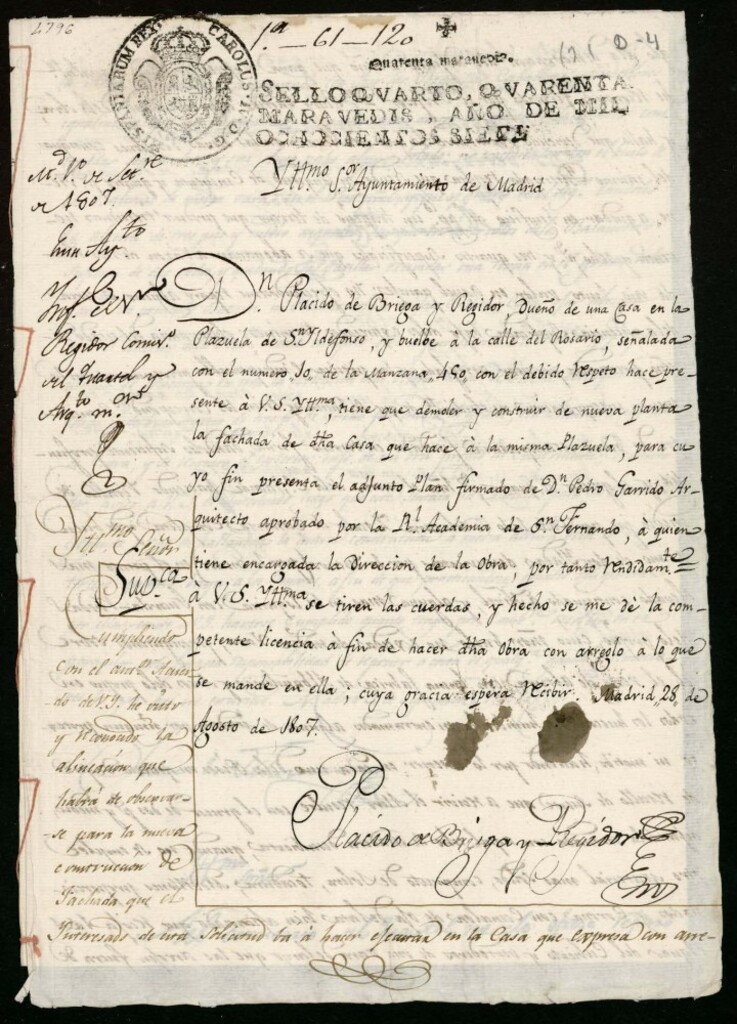 4796
HISPANIARUM REX
CAROLUS IV D G
1ª_61_120
D-4
Quarenta maravedis.
SELLO QVARTO, QVARENTA
MARAVEDIS, AÑO DE MIL
OCHOCIENTOS SIETE
Md. 1º de Setre
de 1807.
Yttmo Sor Ayuntamiento de Madrid
En su Aytto
Regidor Comisº
del Quartel y
Arqto mor
Dn. Placido de Briega y Regidor, Dueño de una Casa en la
Plazuela de Sn Yldefonso, y buelbe à la calle del Rosario, señalada
con el numero 10. de la Manzana 450 con el debido Respeto hace pre-
sente à V.S. Yttma, tiene que demoler y construir de nueva planta
la fachada de dha Casa que hace à la misma Plazuela, para cu
yo fin presenta el adjunto Plan firmado de Dn Pedro Garrido Ar-
quitecto aprobado por la Rl Academia de Sn Fernando, à quien
tiene encargada la Direccion de la Obra; por tanto Rendidamte=
Supca
à V.S. Yttma se tiren las cuerdas, y hecho se me dè la com-
petente licencia à fin de hacer dha Obra con arreglo à lo que
se mande en ella; cuya gracia espera Recibir. Madrid 28 de
Agosto de 1807.
Placido de Briega y Regidor
Yttmo Señor
Cumpliendo
con el antr Acuer
do de V.Y. he visto
y reconocido la
alineacion que
habrá de observar-
se para la nueva
construccion de
Fachada que el
Interesado de esta solicitud ba à hacer ejecutar en la Casa que expresa con arre-